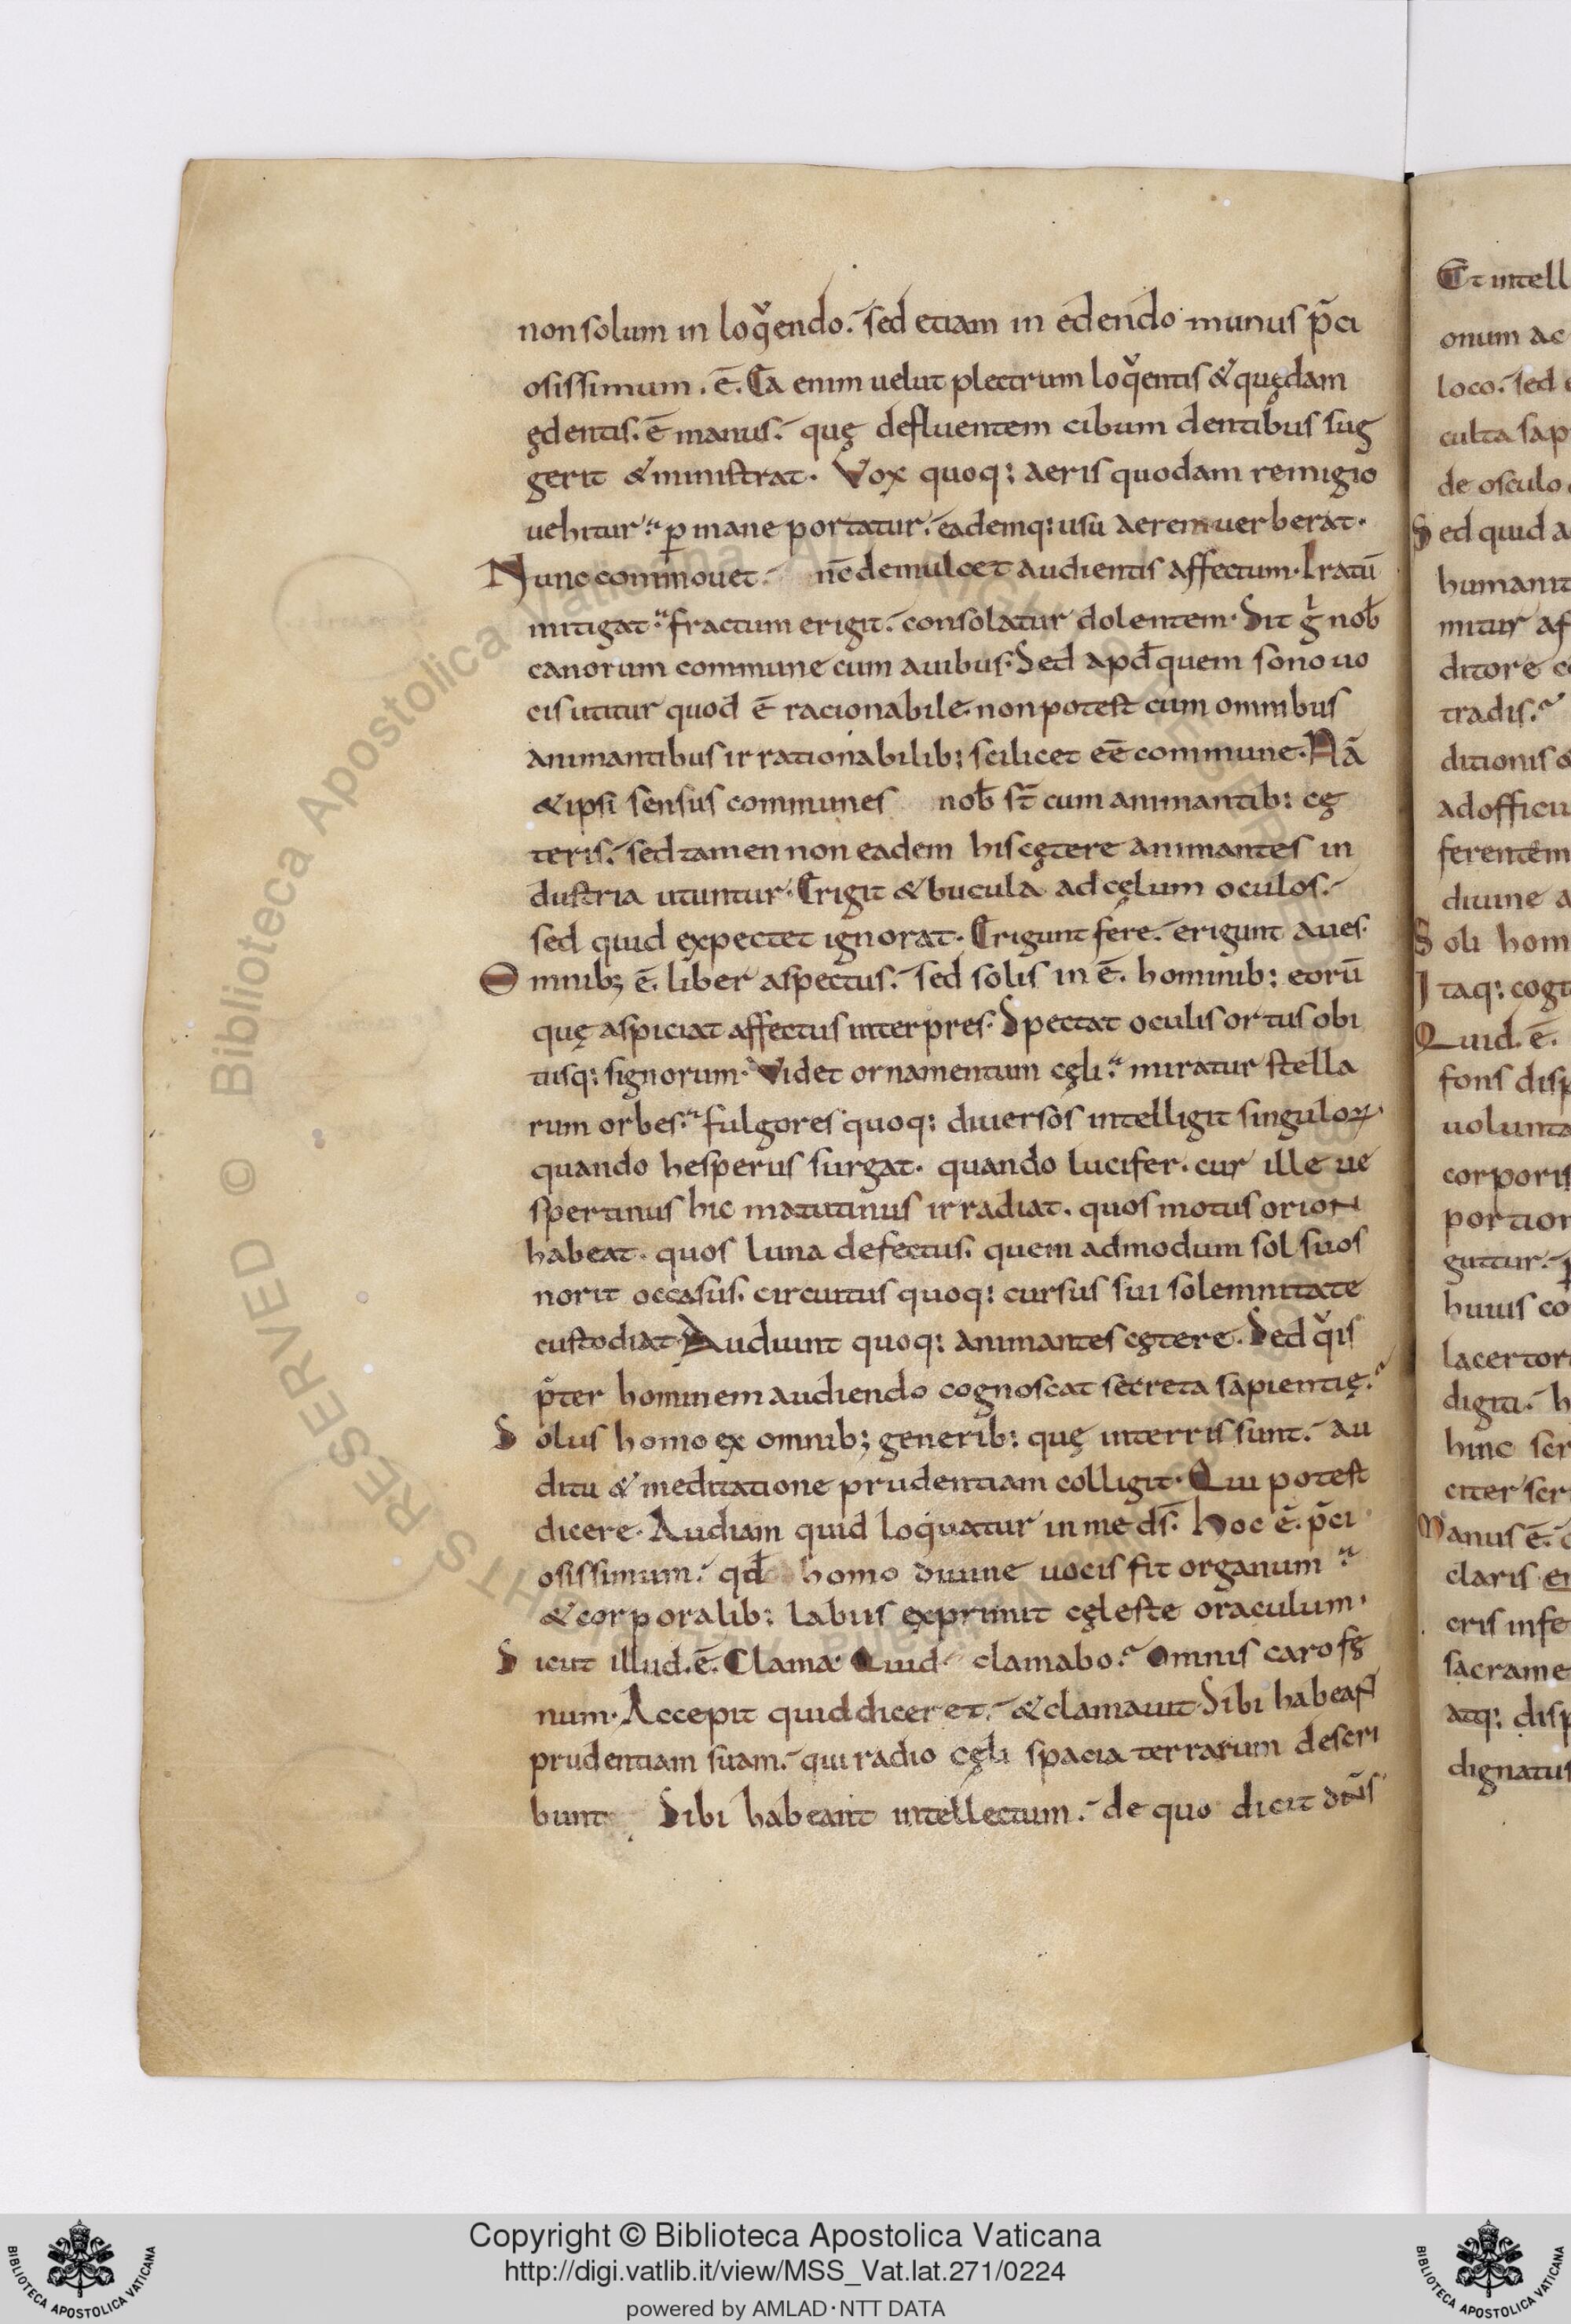 non solum in loq̆endo. sed etiam in edendo munus p̄ci
osissimum. ē. Ea enim uelut plectrum loq̆entis & quędam
ędentis. ē manus. quę defluentem cibum dentibus sug
gerit & ministrat. Vox quoq: aeris quodam remigio
uehitur. per mane portatur. eademq: usu aerem uerberat.
Nunc commouet. nc̄ demulcet audientis affectum. Iratū
mitigat. fractum erigit. consolatur dolentem. Sit g̊ nob̄
canorum commune cum auibus. Sed apd̄ quem sono uo
cis utitur quod ē racionabile. non potest cum omnibus
animantibus irrationabilib: scilicet eē commune. Nā
& ipsi sensus communes nob̄ st̄ cum animantib: cę
teris. sed tamen non eadem his cętere animantes in
dustria utuntur. Erigit & bucula ad cęlum oculos.
sed quid expectet ignorat. Erigunt fere. erigunt aues.
Omnib; ē. liber aspectus. sed solis in ē. hominib: eorū
quę aspiciat affectus interpres. Spectat oculis ortus obi
tusq: signorum. Videt ornamentum cęli. miratur stella
rum orbes. fulgores quoq: diuersos intelligit singuloꝝ.
quando hesperus surgat. quando lucifer. cur ille ue
spertinus hic matutinus irradiat. quos motus orion
habeat. quos luna defectus. quem admodum sol suos
norit occasus. circuitus quoq: cursus sui solemnitate
custodiat. Audiunt quoq: animantes cętere. Sed q̆is
p̄ter hominem audiendo cognoscat secreta sapientię.
Solus homo ex omnib; generib: quę interris sunt. au
ditu & meditatione prudentiam colligit. Qui potest
dicere. Audiam quid loquatur in me ds̄. Hoc ē. p̄ci
osissimum. qd̄ homo diuine uocis fit organum
& corporalib: labiis exprimit cęleste oraculum.
Sicut illud. ē. Clama. Quid clamabo. Omnis caro fę
num. Accepit quid diceret. & clamauit. Sibi habeant
prudentiam suam. qui radio cęli spacia terrarum descri
bunt Sibi habeant intellectum. de quo dicit dn̄s
Et intell
onum ac
loco. sed
culta sap
de osculo
Sed quid a
humanit
mitur af
ditore
tradis.
ditionis
ad officiu
ferentem
diuine a
Soli hom
Itaq: cogi
Quid. ē.
fons disp
uolunta
corporis
portion
guttur.
huius co
lacertor
digiti. h
hinc scr
citer scr
Manus ē.
claris
cris infe
sacrame
atq: disp
dignatus
© Biblioteca Apostolica Vaticana
Copyright © Biblioteca Apostolica Vaticana
http://digi.vatlib.it/view/MSS_Vat.lat.271/0224
powered by AMLAD·NTT DATA
BIBLIOTECA APOSTOLICA VATICANA
BIBLIOTECA APOSTOLICA VATICANA